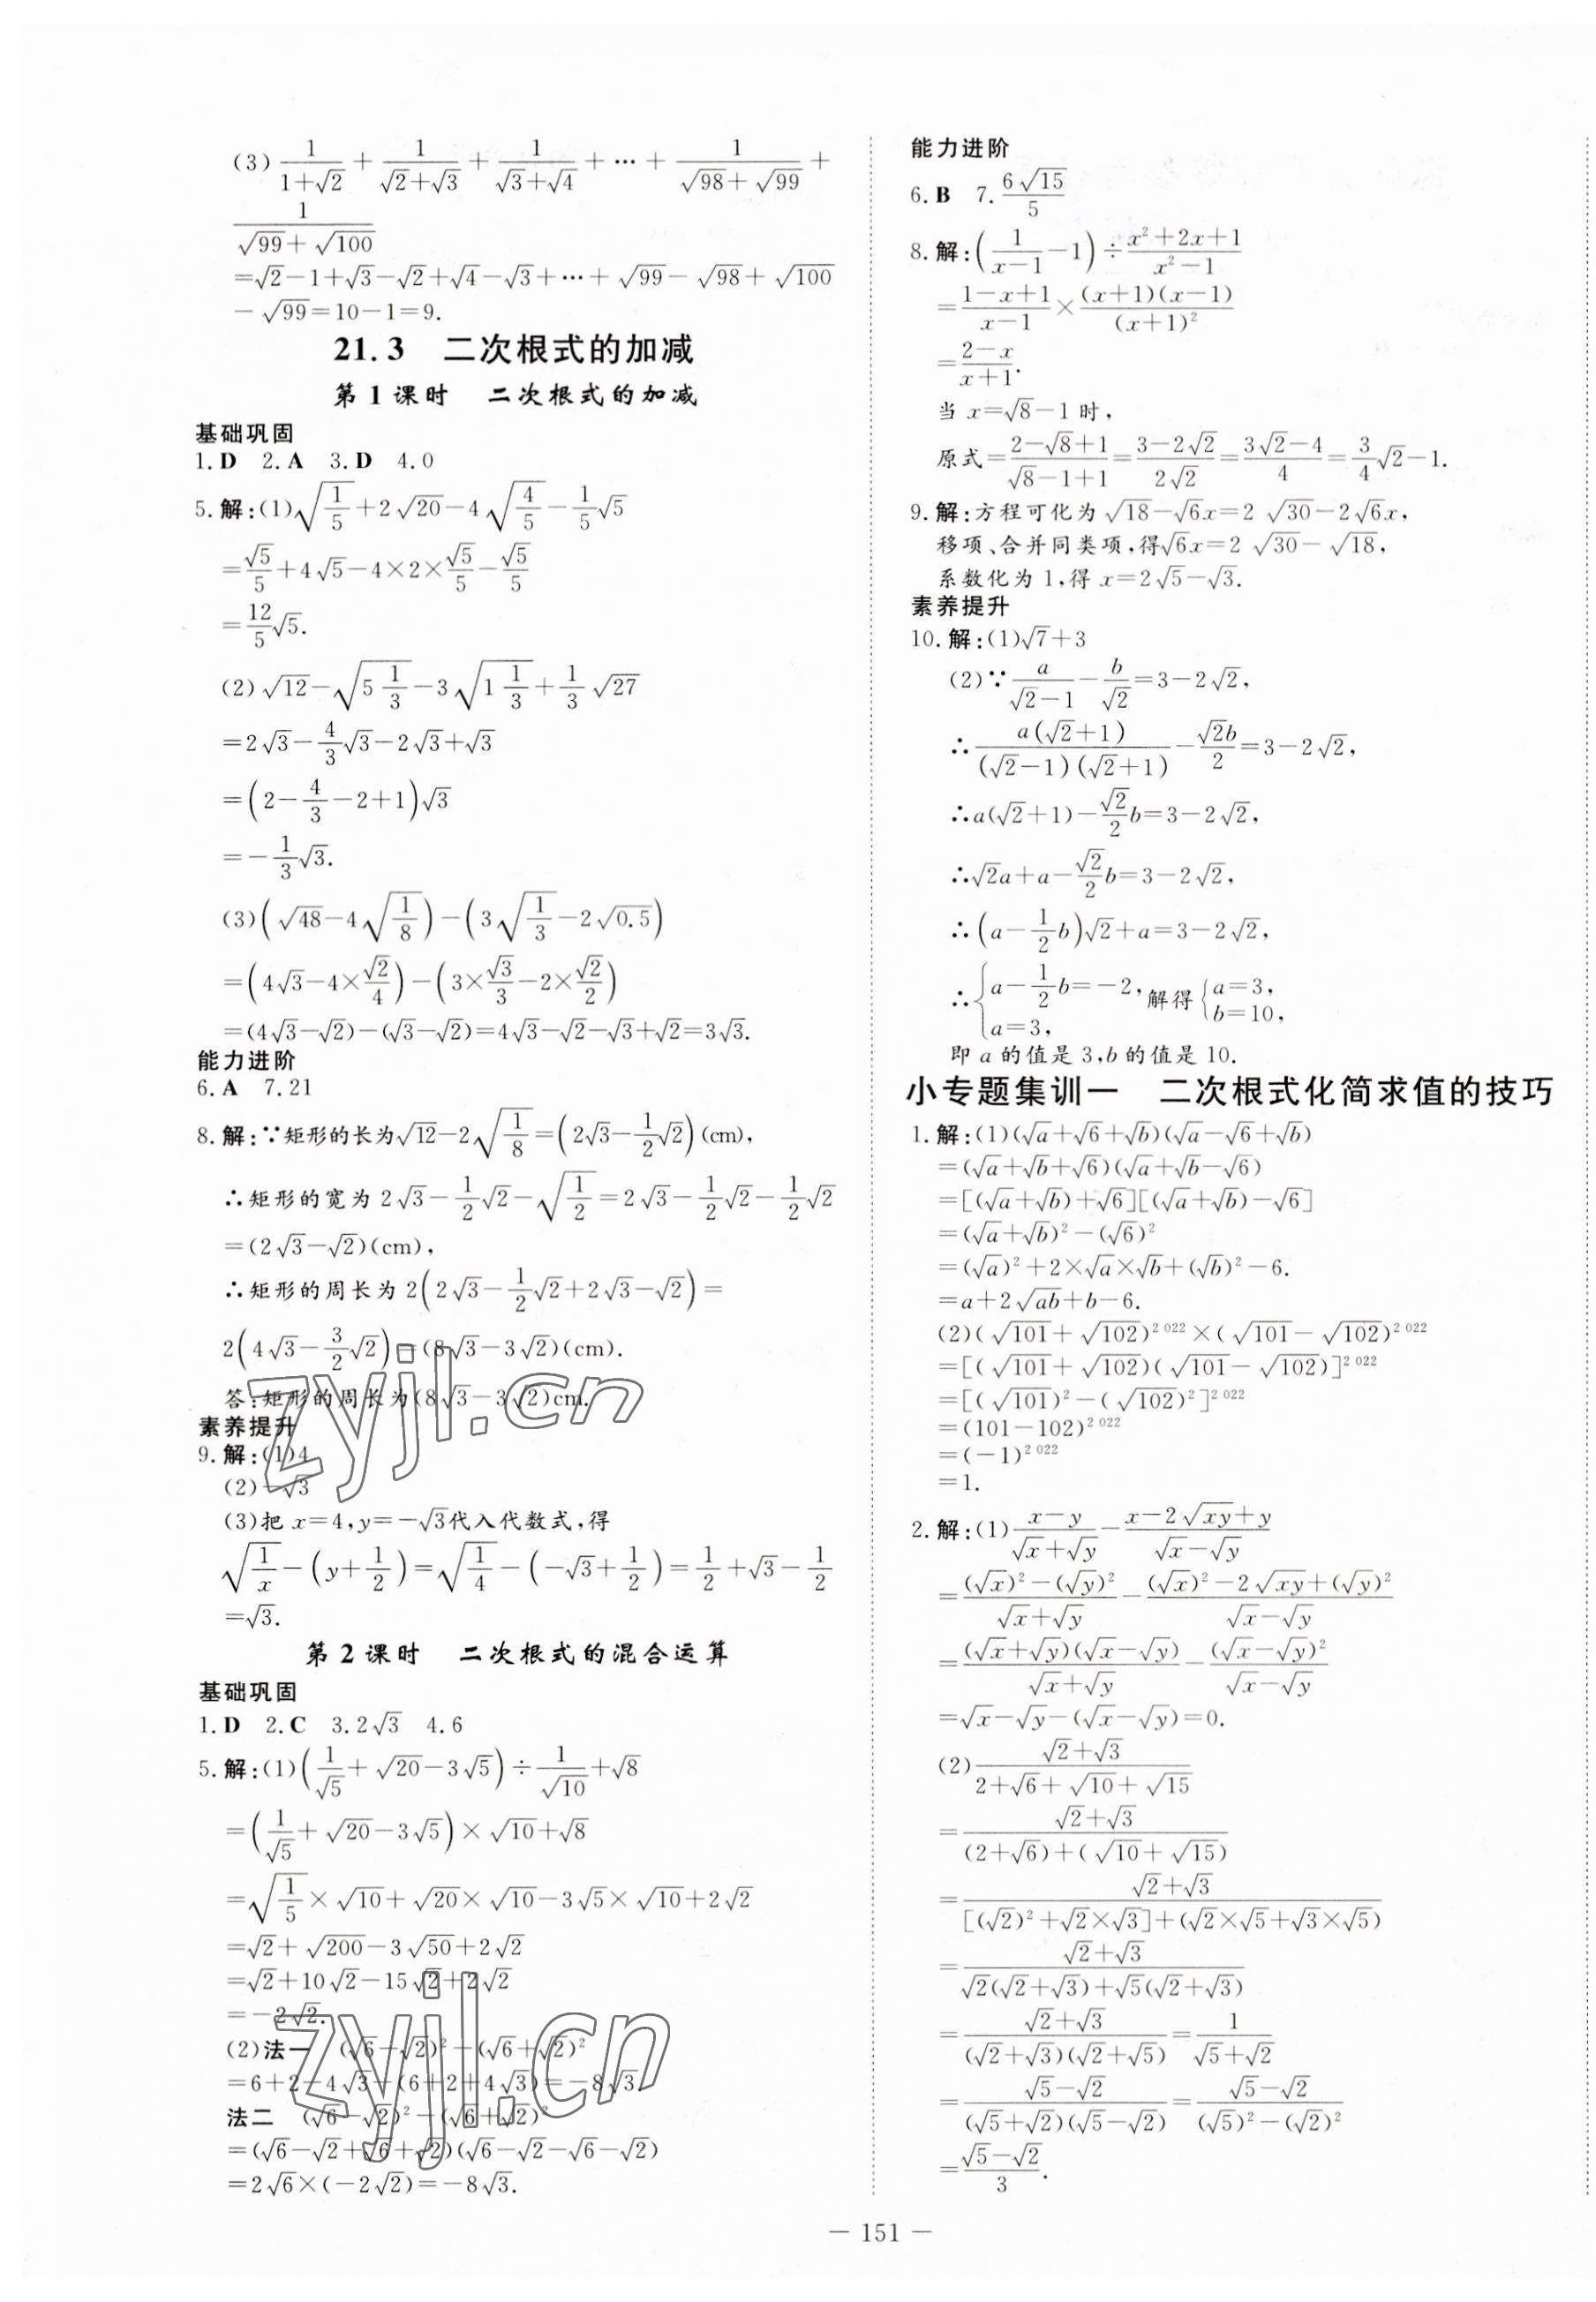 (3) 1/(1+√2) + 1/(√2+√3) + 1/(√3+√4) + ⋯ + 1/(√98+√99) +
1/(√99+√100)
=√2−1+√3−√2+√4−√3+⋯+√99−√98+√100
−√99=10−1=9.
21.3 二次根式的加减
第1课时 二次根式的加减
基础巩固
1.D 2.A 3.D 4.0
5.解:(1)√(1/5)+2√20−4√(4/5)−(1/5)√5
=√5/5+4√5−4×2×√5/5−√5/5
=(12/5)√5.
(2)√12−√(5 1/3)−3√(1 1/3)+(1/3)√27
=2√3−(4/3)√3−2√3+√3
=(2−4/3−2+1)√3
=−(1/3)√3.
(3)(√48−4√(1/8))−(3√(1/3)−2√0.5)
=(4√3−4×√2/4)−(3×√3/3−2×√2/2)
=(4√3−√2)−(√3−√2)=4√3−√2−√3+√2=3√3.
能力进阶
6.A 7.21
8.解:∵矩形的长为√12−2√(1/8)=(2√3−(1/2)√2)(cm),
∴矩形的宽为2√3−(1/2)√2−√(1/2)=2√3−(1/2)√2−(1/2)√2
=(2√3−√2)(cm),
∴矩形的周长为2(2√3−(1/2)√2+2√3−√2)=
2(4√3−(3/2)√2)=(8√3−3√2)(cm).
答:矩形的周长为(8√3−3√2)cm.
素养提升
9.解:(1)4
(2)−√3
(3)把x=4,y=−√3代入代数式,得
√(1/x)−(y+1/2)=√(1/4)−(−√3+1/2)=1/2+√3−1/2
=√3.
第2课时 二次根式的混合运算
基础巩固
1.D 2.C 3.2√3 4.6
5.解:(1)(1/√5+√20−3√5)÷1/√10+√8
=(1/√5+√20−3√5)×√10+√8
=√(1/5)×√10+√20×√10−3√5×√10+2√2
=√2+√200−3√50+2√2
=√2+10√2−15√2+2√2
=−2√2.
(2)法一 (√6−√2)²−(√6+√2)²
=6+2−4√3−(6+2+4√3)=−8√3.
法二 (√6−√2)²−(√6+√2)²
=(√6−√2+√6+√2)(√6−√2−√6−√2)
=2√6×(−2√2)=−8√3.
能力进阶
6.B 7.6√15/5
8.解:(1/(x−1)−1)÷(x²+2x+1)/(x²−1)
=(1−x+1)/(x−1)×(x+1)(x−1)/(x+1)²
=(2−x)/(x+1).
当x=√8−1时,
原式=(2−√8+1)/(√8−1+1)=(3−2√2)/(2√2)=(3√2−4)/4=(3/4)√2−1.
9.解:方程可化为√18−√6x=2√30−2√6x,
移项、合并同类项,得√6x=2√30−√18,
系数化为1,得x=2√5−√3.
素养提升
10.解:(1)√7+3
(2)∵a/(√2−1)−b/√2=3−2√2,
∴a(√2+1)/((√2−1)(√2+1))−√2b/2=3−2√2,
∴a(√2+1)−(√2/2)b=3−2√2,
∴√2a+a−(√2/2)b=3−2√2,
∴(a−(1/2)b)√2+a=3−2√2,
∴{a−(1/2)b=−2, a=3, 解得{a=3, b=10,
即a的值是3,b的值是10.
小专题集训一 二次根式化简求值的技巧
1.解:(1)(√a+√6+√b)(√a−√6+√b)
=(√a+√b+√6)(√a+√b−√6)
=[(√a+√b)+√6][(√a+√b)−√6]
=(√a+√b)²−(√6)²
=(√a)²+2×√a×√b+(√b)²−6.
=a+2√ab+b−6.
(2)(√101+√102)^2 022×(√101−√102)^2 022
=[(√101+√102)(√101−√102)]^2 022
=[(√101)²−(√102)²]^2 022
=(101−102)^2 022
=(−1)^2 022
=1.
2.解:(1)(x−y)/(√x+√y)−(x−2√xy+y)/(√x−√y)
=((√x)²−(√y)²)/(√x+√y)−((√x)²−2√xy+(√y)²)/(√x−√y)
=(√x+√y)(√x−√y)/(√x+√y)−(√x−√y)²/(√x−√y)
=√x−√y−(√x−√y)=0.
(2)(√2+√3)/(2+√6+√10+√15)
=(√2+√3)/((2+√6)+(√10+√15))
=(√2+√3)/([(√2)²+√2×√3]+(√2×√5+√3×√5))
=(√2+√3)/(√2(√2+√3)+√5(√2+√3))
=(√2+√3)/((√2+√3)(√2+√5))=1/(√5+√2)
=(√5−√2)/((√5+√2)(√5−√2))=(√5−√2)/((√5)²−(√2)²)
=(√5−√2)/3.
— 151 —
zyjl.cn
zyjl.cn